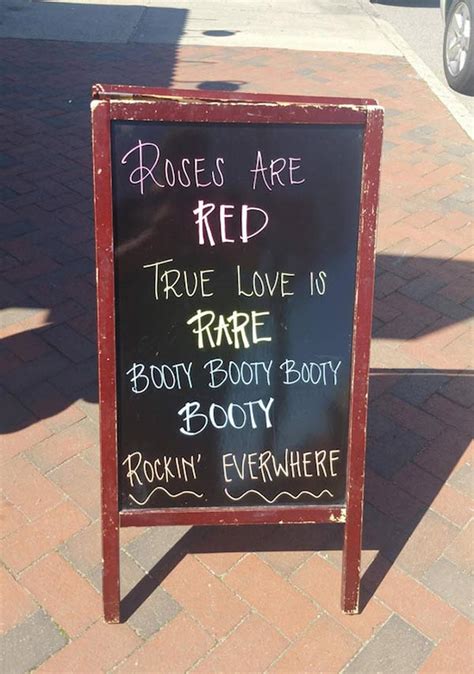 Roses Are
RED
True Love is
RARE
Booty Booty Booty
Booty
Rockin' Everwhere